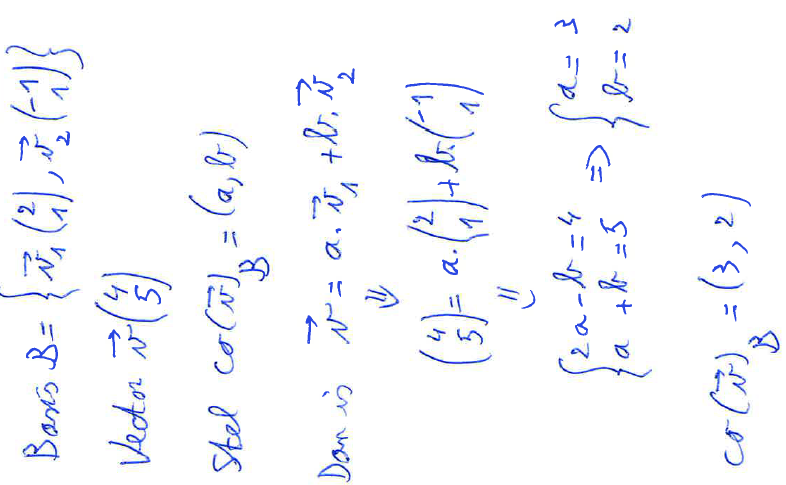 Basis B = { v⃗₁(2 1), v⃗₂(-1 1) }
Vector v⃗(4 5)
Stel co(v⃗)_B = (a, b)
Dan is v⃗ = a. v⃗₁ + b. v⃗₂
⇓
(4 5) = a. (2 1) + b. (-1 1)
⇓
{ 2a - b = 4 ⇒ { a = 3
{ a + b = 5 { b = 2
co(v⃗)_B = (3, 2)